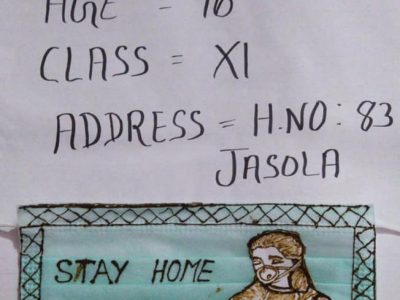 AGE - 16
CLASS = XI
ADDRESS = H.NO: 83
JASOLA
STAY HOME